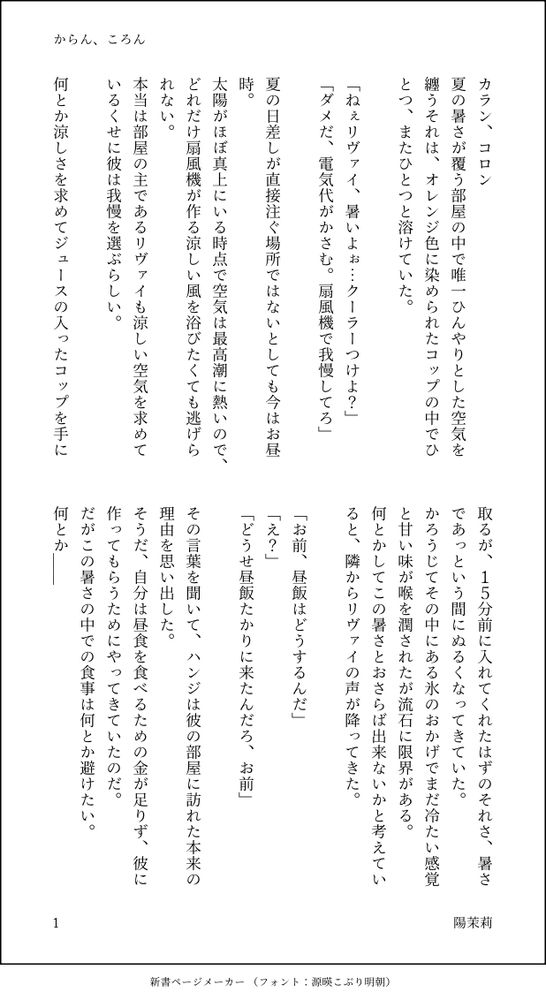 からん、ころん
カラン、コロン
夏の暑さが覆う部屋の中で唯一ひんやりとした空気を
纏うそれは、オレンジ色に染められたコップの中でひ
とつ、またひとつと溶けていた。
「ねぇリヴァイ、暑いよぉ…クーラーつけよ？」
「ダメだ、電気代がかさむ。扇風機で我慢してろ」
夏の日差しが直接注ぐ場所ではないとしても今はお昼
時。
太陽がほぼ真上にいる時点で空気は最高潮に熱いので、
どれだけ扇風機が作る涼しい風を浴びたくても逃げら
れない。
本当は部屋の主であるリヴァイも涼しい空気を求めて
いるくせに彼は我慢を選ぶらしい。
何とか涼しさを求めてジュースの入ったコップを手に
取るが、15分前に入れてくれたはずのそれさ、暑さ
であっという間にぬるくなってきていた。
かろうじてその中にある氷のおかげでまだ冷たい感覚
と甘い味が喉を潤されたが流石に限界がある。
何とかしてこの暑さとおさらば出来ないかと考えてい
ると、隣からリヴァイの声が降ってきた。
「お前、昼飯はどうするんだ」
「え？」
「どうせ昼飯たかりに来たんだろ、お前」
その言葉を聞いて、ハンジは彼の部屋に訪れた本来の
理由を思い出した。
そうだ、自分は昼食を食べるための金が足りず、彼に
作ってもらうためにやってきていたのだ。
だがこの暑さの中での食事は何とか避けたい。
何とか――
1
陽茉莉
新書ページメーカー（フォント：源暎こぶり明朝）